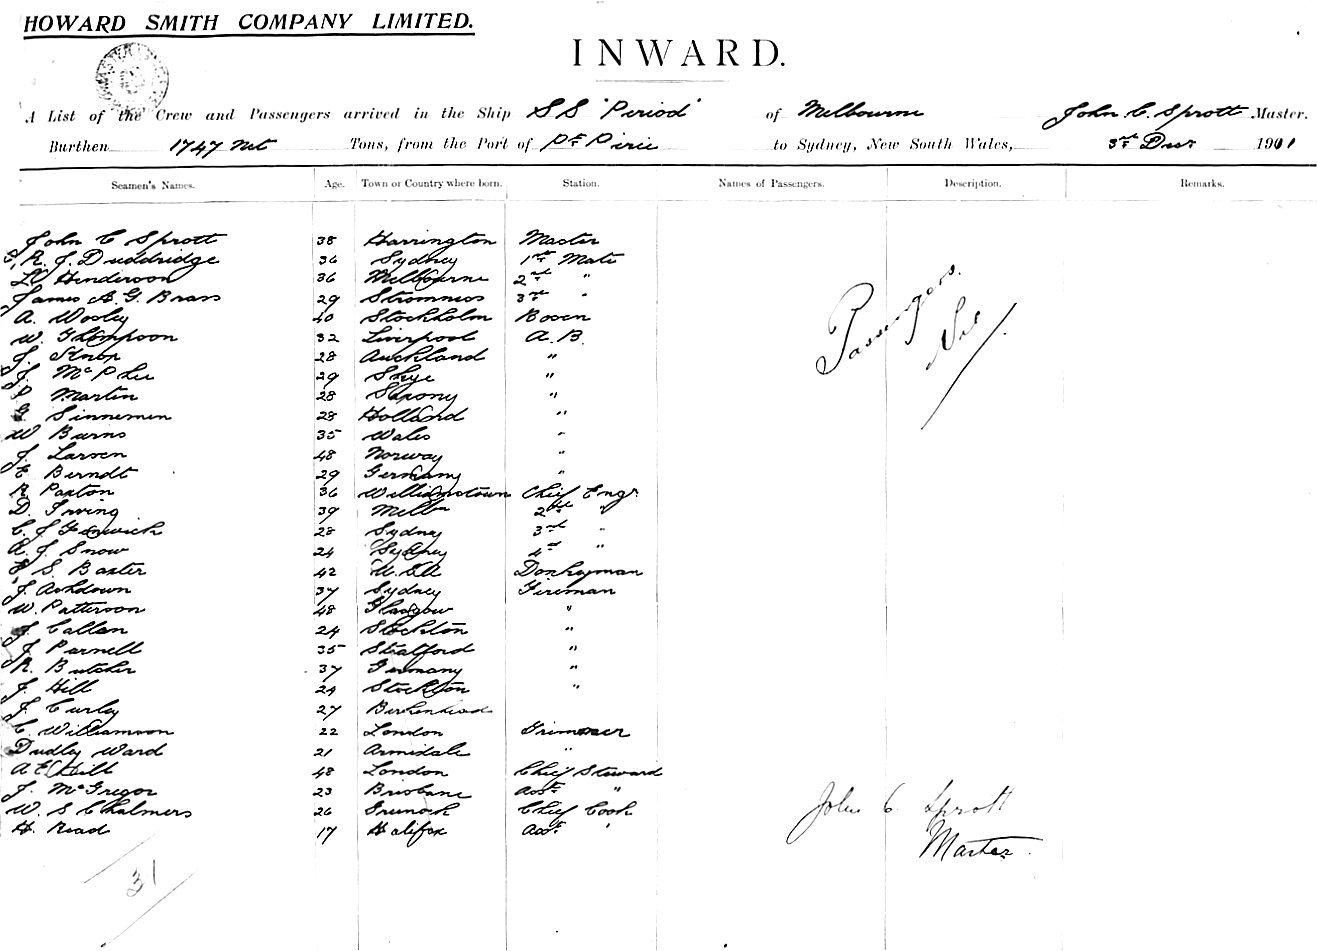 HOWARD SMITH COMPANY LIMITED.
INWARD.
A List of the Crew and Passengers arrived in the Ship SS "Period" of Melbourne John C. Sprott Master.
Burthen 1747 Net Tons, from the Port of Pt Pirie to Sydney, New South Wales, 3rd Decr 1901
Seamen's Names. Age. Town or Country where born. Station. Names of Passengers. Description. Remarks.
John C Sprott 38 Harrington Master
R. J. Duddridge 36 Sydney 1st Mate
L Henderson 36 Melbourne 2nd "
James A. G. Brass 29 Stromness 3rd "
A. Wosley 40 Stockholm Bosen
W. Thompson 32 Liverpool A.B.
J. Knop 28 Auckland "
J. McPhee 29 Skye "
P Martin 28 Saxony "
G. Sinnemen 28 Holland "
W Burns 35 Wales "
J. Larsen 48 Norway "
E Berndt 29 Germany "
R Paxton 36 Williamstown Chief Engr
D. Irving 39 Melbn 2nd "
C. J Fenwick 28 Sydney 3rd "
A. J. Snow 24 Sydney 4th "
S. Baxter 42 U.S.A Donkeyman
J. Ashdown 37 Sydney Fireman
W. Patterson 48 Glasgow "
J. Callan 24 Stockton "
J Parnell 35 Stratford "
R. Butcher 37 Germany "
J. Hill 24 Stockton "
J. Curley 27 Birkenhead
C. Williamson 22 London Trimmer
Dudley Ward 21 Armidale "
A E Hill 48 London Chief Steward
J. McGregor 23 Brisbane Asst "
W. S Chalmers 26 Greenock Chief Cook
H. Read 17 Halifax Asst. "
31
Passengers.
Nil
John C Sprott
Master.